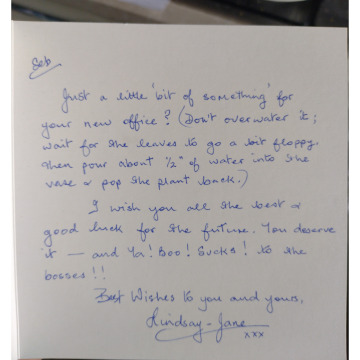 Seb
Just a little 'bit of something' for
your new office? (Don't overwater it;
wait for the leaves to go a bit floppy
then pour about ½" of water into the
vase & pop the plant back.)
I wish you all the best &
good luck for the future. You deserve
it — and Ya! Boo! Sucks! to the
bosses!!
Best Wishes to you and yours,
Lindsay-Jane
xxx